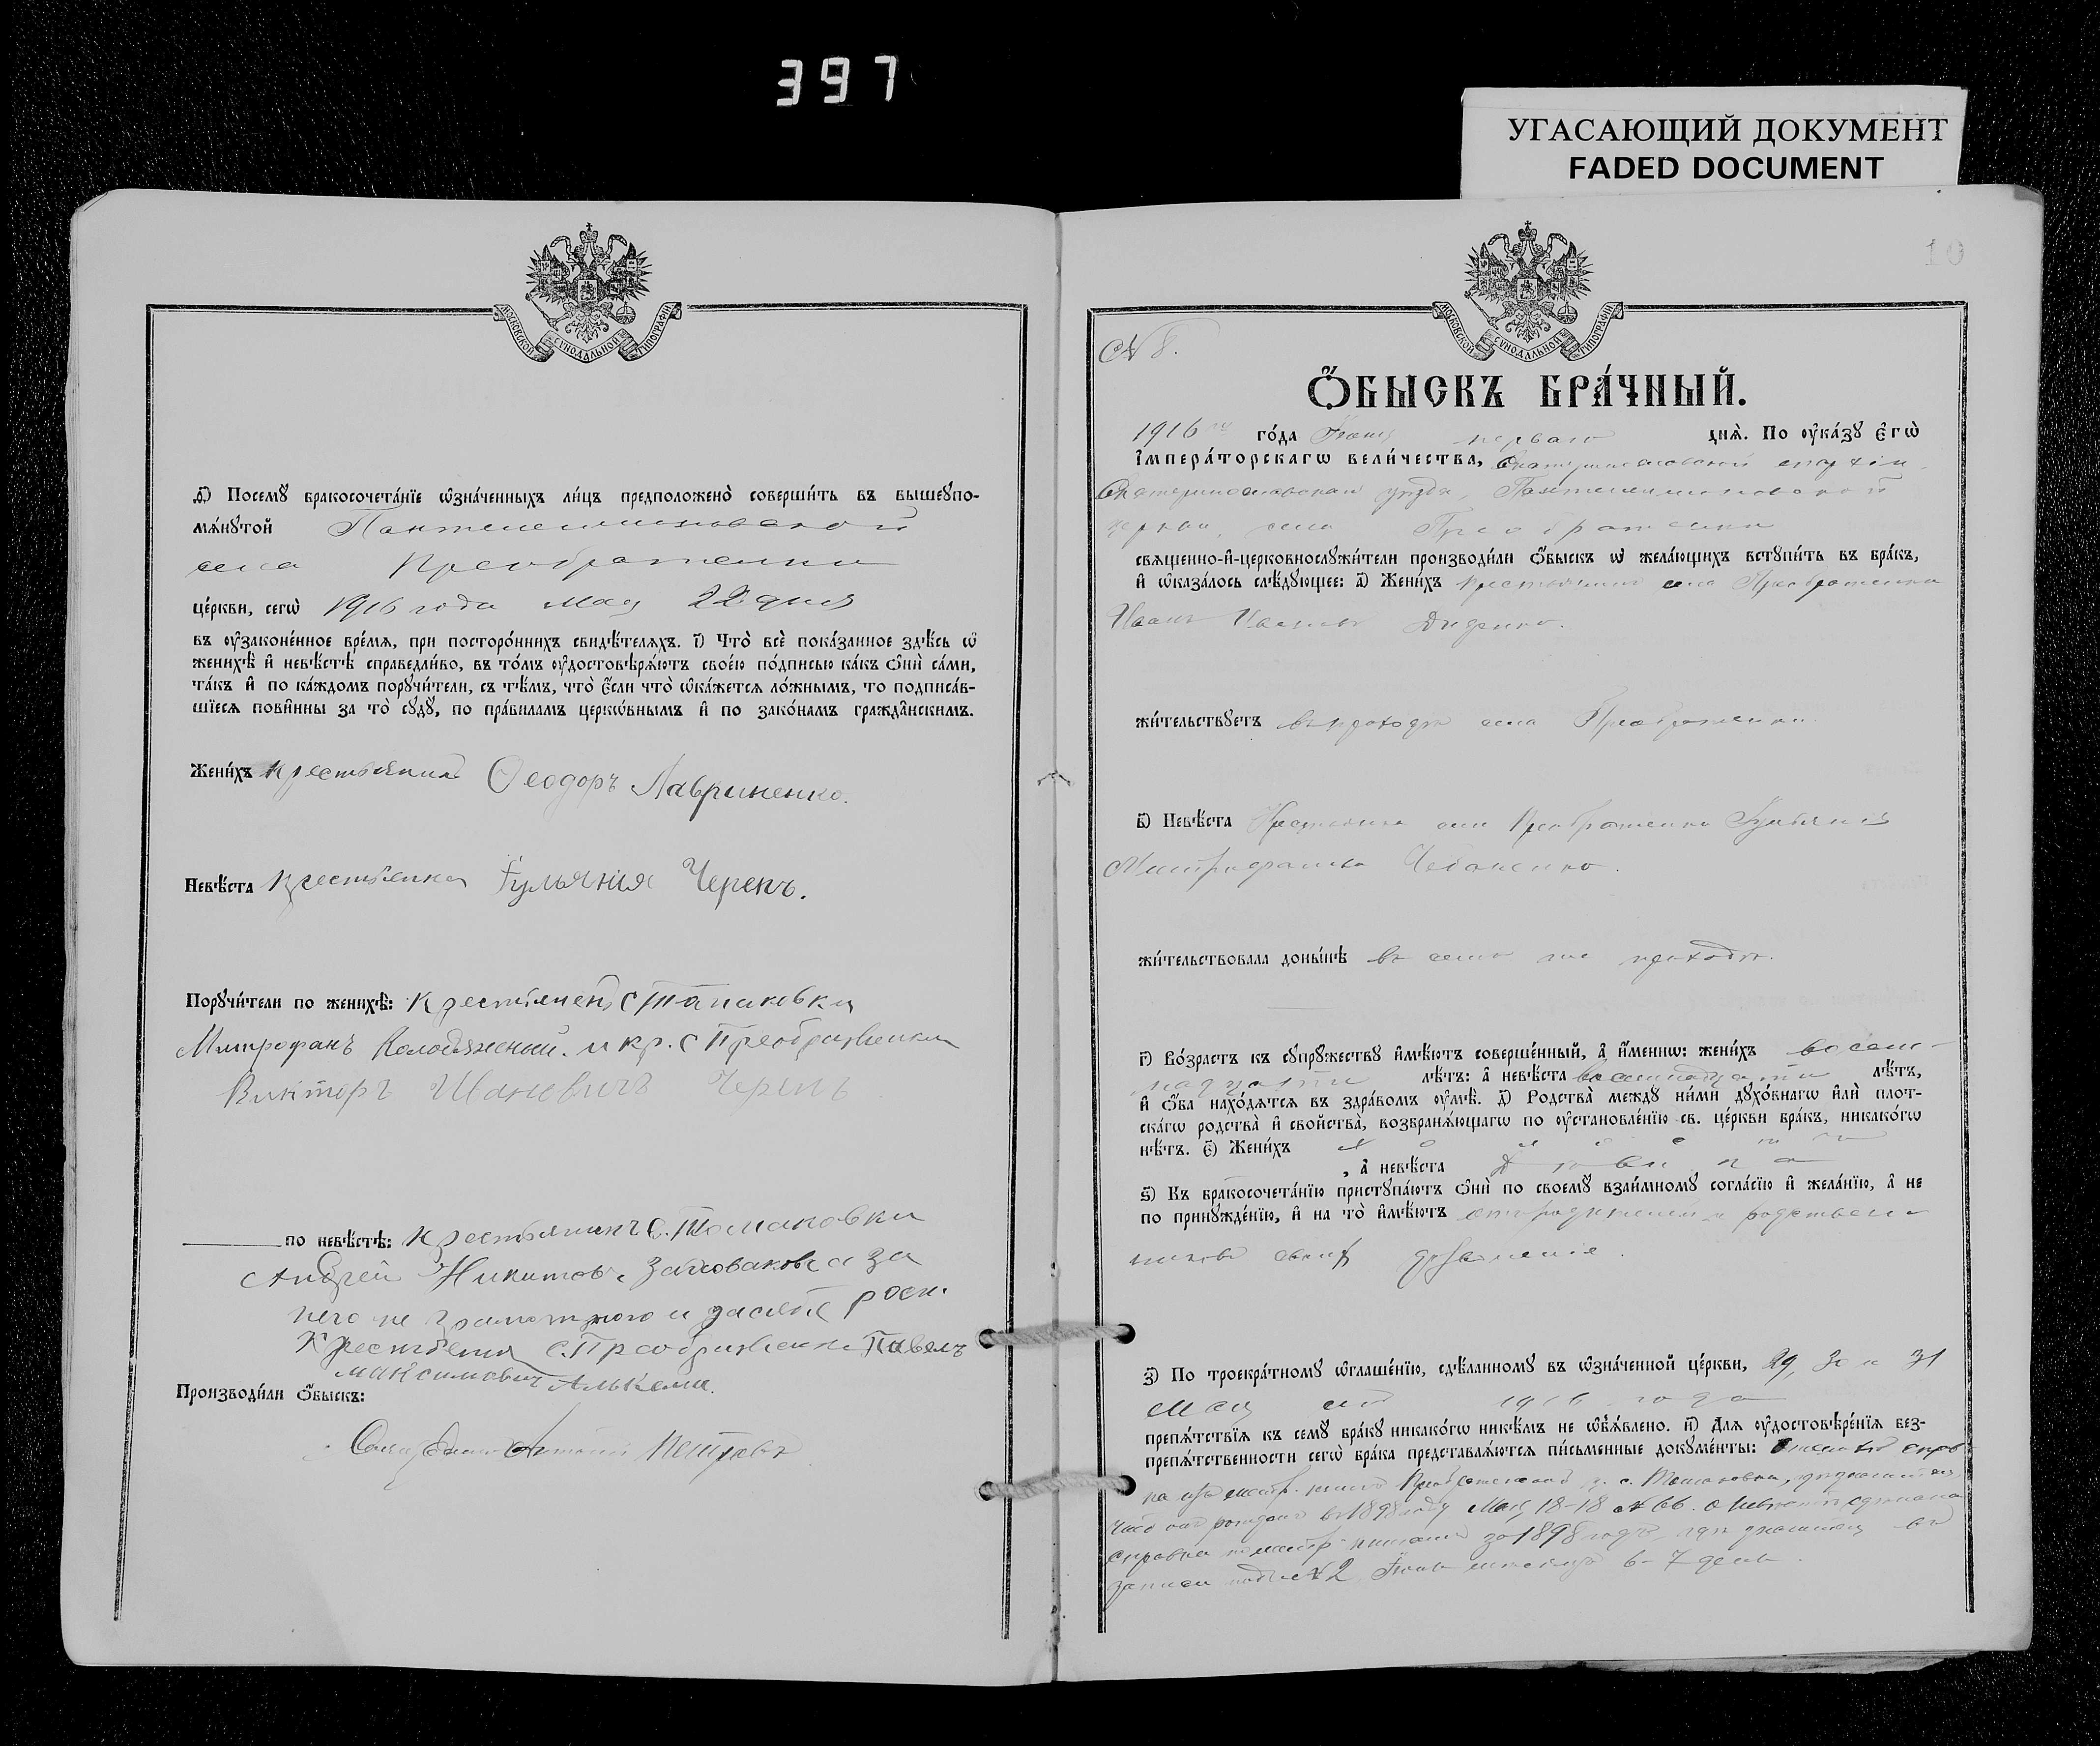 397
УГАСАЮЩИЙ ДОКУМЕНТ
FADED DOCUMENT
МОСКОВСКОЙ СУНОДАЛЬНОЙ ТИПОГРАФІИ
д҃) Посемꙋ̀ бракосочета́нїе ѡ҆зна́ченныхъ ли́цъ предположено̀ соверши́ть въ вышеꙋпо-
мѧ́нꙋтой Пантелеимоновской
села Преображенки
це́ркви, сегѡ̀ 1916 года мая 22 дня
въ ꙋ҆зако́не́нное вре́мѧ, при посторо́ннихъ свидѣ́телѧхъ. і҃) Что̀ всѐ пока́занное здѣ́сь ѡ҆
женихѣ̀ и҆ невѣ́стѣ справедли́во, въ то́мъ ꙋ҆достовѣрѧ́ютъ свое́ю по́дписью ка́къ ѻ҆нѝ са́ми,
та́къ и҆ по ка́ждомъ порꙋчи́тели, съ тѣ́мъ, что̀ є҆́сли что̀ ѡ҆ка́жетсѧ ло́жнымъ, то подписа́в-
шїесѧ пови́нны за то̀ сꙋдꙋ̀, по пра́виламъ церко́внымъ и҆ по зако́намъ гражда́нскимъ.
Жени́хъ крестьянинъ Ѳеодоръ Лавриненко.
Невѣ́ста крестьянка Іульянія Черепъ.
Порꙋчи́тели по женихѣ̀: крестьянен с
Митрофанъ Колодяжный. и кр. с Преображенки
Викторъ Иванович Черепъ
по невѣ́стѣ: крестьянинъ с. Томаковки
Андрей Никитов. а за
него не грамотного и засебе росп.
Крестьянин с. Преображенки Павелъ
максимович
Производи́ли ѻ҆́быскъ:
Антоній Петровъ
10
МОСКОВСКОЙ СУНОДАЛЬНОЙ ТИПОГРАФІИ
№ 8.
Ѻ҆́БЫСКЪ БРА́ЧНЫЙ.
1916 го го́да Іюня перваго днѧ̀. По ꙋ҆ка́зꙋ є҆гѡ̀
і҆мпера́торскагѡ вели́чества, Екатеринославской епархіи,
Екатеринославскаго уѣзда, Пантелеимоновской
церкви, села Преображенки
свѧщенно-и҆-церковнослꙋжи́тели производи́ли ѻ҆́быскъ ѡ҆ жела́ющихъ встꙋпи́ть въ бра́къ,
и҆ ѡ҆каза́лось слѣ́дꙋющее: а҃) Жени́хъ крестьянинъ села Преображенки
Иванъ Диденко.
жи́тельствꙋетъ въ приходѣ села Преображенки.
в҃) Невѣ́ста Крестьянка села Преображенки Іульянія
Митрофанова Чабаненко.
жи́тельствовала доны́нѣ въ семъ же приходѣ.
г҃) Во́зрастъ къ сꙋпрꙋ́жествꙋ и҆мѣ́ютъ соверше́нный, а҆ и҆́меннѡ: жени́хъ восем-
надцати лѣ́тъ: а҆ невѣ́ста восемнадцати лѣ́тъ,
и҆ ѻ҆́ба нахо́дѧтсѧ въ здра́вомъ ꙋ҆мѣ̀. д҃) Родства̀ междꙋ ни́ми дꙋхо́внагѡ и҆лѝ плот-
скагѡ родства̀ и҆ сво́йства̀, возбранѧ́ющагѡ по ꙋ҆становле́нїю св. це́ркви бра́къ, никако́гѡ
нѣ́тъ. є҃) Жени́хъ холостъ
, а҆ невѣ́ста дѣвица
ѕ҃) Къ бракосочета́нїю пристꙋпа́ютъ ѻ҆нѝ по своемꙋ̀ взаи́мномꙋ согла́сїю и҆ жела́нїю, а҆ не
по принꙋжде́нїю, и҆ на то̀ и҆мѣ́ютъ отъ родителей и родствен-
никовъ своихъ дозволеніе.
з҃) По троекра́тномꙋ ѡ҆глаше́нїю, сдѣ́ланномꙋ въ ѡ҆зна́ченной це́ркви, 29, 30 и 31
Мая 1916 года
препѧ́тствїѧ къ семꙋ̀ бра́кꙋ никако́гѡ никѣ́мъ не ѡ҆б̾ѧ́влено. и҃) Длѧ ꙋ҆достовѣре́нїѧ без-
препѧ́тственности сегѡ̀ бра́ка представлѧ́ютсѧ пи́сьменные докꙋме́нты:
с. Томаковки,
рожденъ въ 1898 году Мая 18-18 № 66. о невѣстѣ сдѣлана
справка по метр. книгамъ за 1898 годъ, гдѣ
записи подъ № 2 6-7 день.